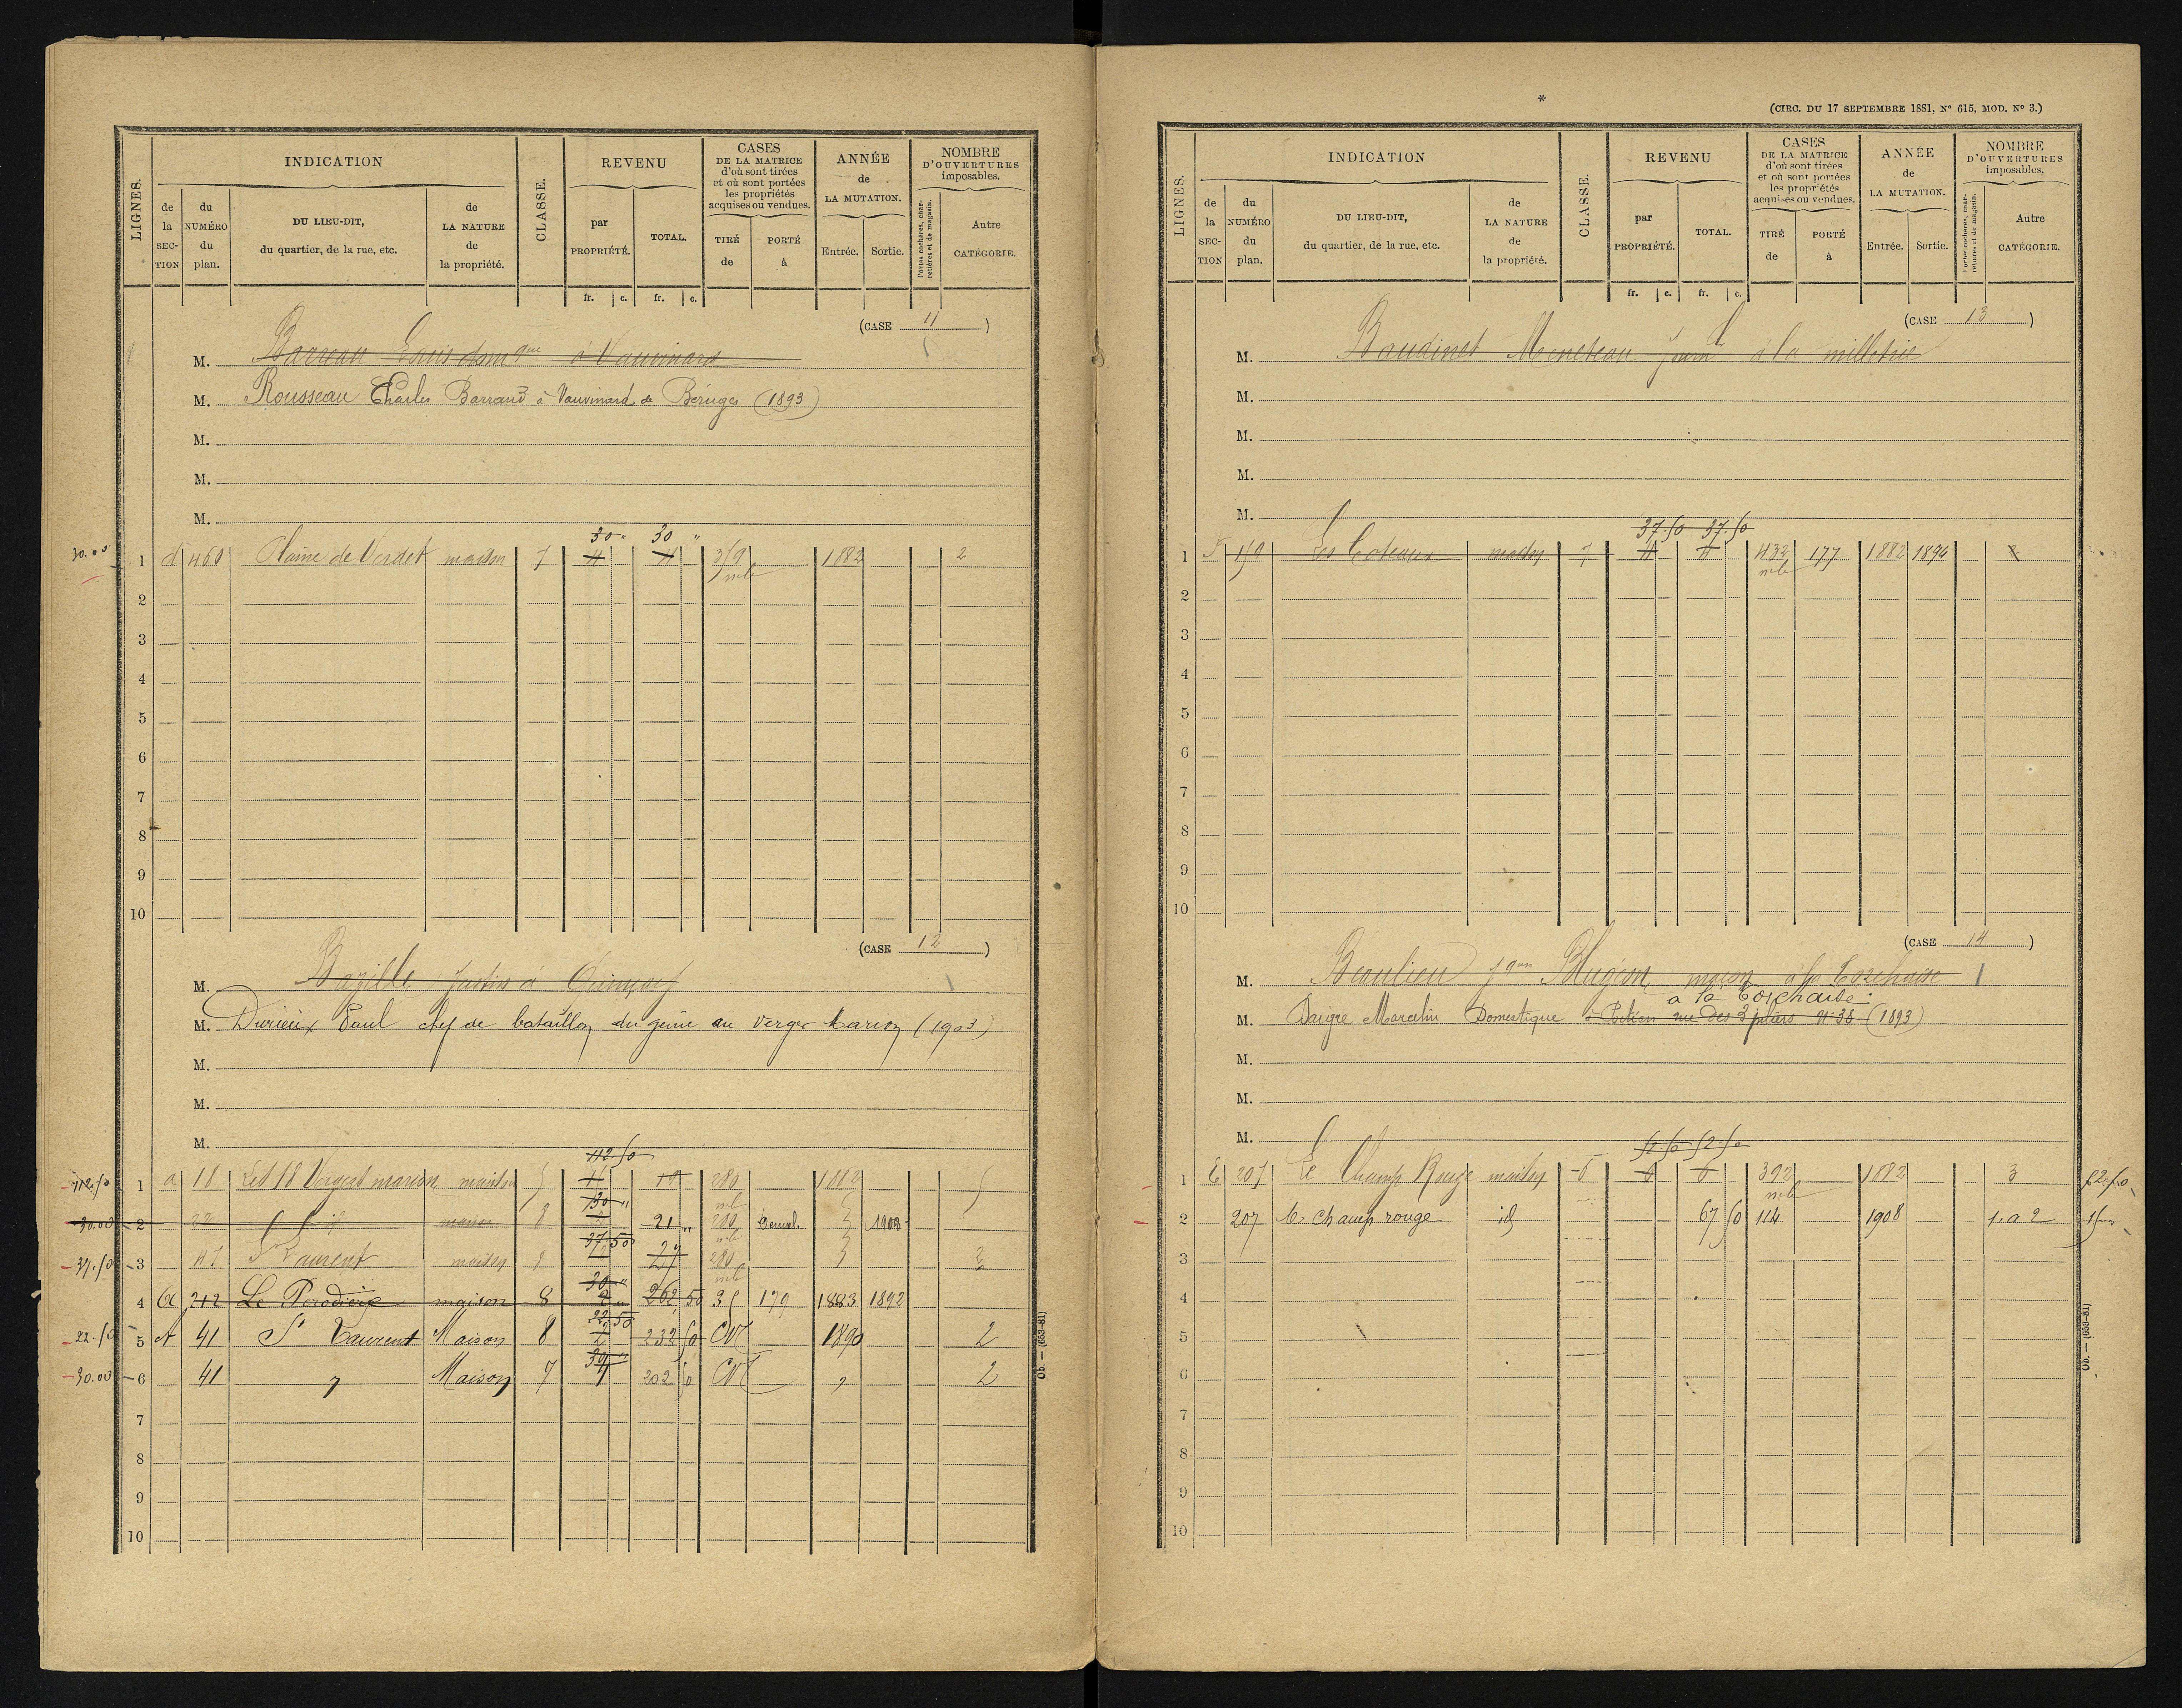 LIGNES.
INDICATION
de la SECTION
du NUMÉRO du plan.
DU LIEU-DIT, du quartier, de la rue, etc.
de LA NATURE de la propriété.
CLASSE.
REVENU
par PROPRIÉTÉ.
TOTAL.
CASES DE LA MATRICE d'où sont tirées et où sont portées les propriétés acquises ou vendues.
TIRÉ de
PORTÉ à
ANNÉE de LA MUTATION.
Entrée.
Sortie.
NOMBRE D'OUVERTURES imposables.
Portes cochères, charretières et de magasin.
Autre CATÉGORIE.
fr. c. fr. c.
(CASE 11)
M. Barreau Louis à Vauvinard
M. Rousseau Charles Barraud à Vauvinard de Béruges (1893)
M.
M.
M.
30 " 30 "
30.00 1 d 460 Plaine de Verdet maison 7 4 4 319 1882 2
2
3
4
5
6
7
8
9
10
(CASE 12)
M. Bazille Justin à Quinçay
M. Durieux Paul chef de bataillon du génie au Verger Marion (1903)
M.
M.
M.
112.50
112.50 1 a 18 maison 5 280 1882 5
30 "
30.00 2 22 id maison 8 2 21 " 280 Demol. 1908
37 50
37.50 3 47 St Laurent maison 8 27 280 2
30 "
4 212 maison 8 2 " 262 50 35 179 1883 1892
22 50
22.50 5 A 41 St Laurent Maison 8 2 232 50 CN 1890 2
30 "
30.00 6 41 " Maison 7 4 202 50 CN " 2
7
8
9
10
Ob. — (653-81)
*
(CIRC. DU 17 SEPTEMBRE 1881, N° 615, MOD. N° 3.)
LIGNES.
INDICATION
de la SECTION
du NUMÉRO du plan.
DU LIEU-DIT, du quartier, de la rue, etc.
de LA NATURE de la propriété.
CLASSE.
REVENU
par PROPRIÉTÉ.
TOTAL.
CASES DE LA MATRICE d'où sont tirées et où sont portées les propriétés acquises ou vendues.
TIRÉ de
PORTÉ à
ANNÉE de LA MUTATION.
Entrée.
Sortie.
NOMBRE D'OUVERTURES imposables.
Portes cochères, charretières et de magasin.
Autre CATÉGORIE.
fr. c. fr. c.
(CASE 13)
M. Baudinet Meneteau à la milletrie
M.
M.
M.
M.
37.50 37.50
1 F 150 Les Coteaux maison 7 4 4 432 177 1882 1894 2
2
3
4
5
6
7
8
9
10
(CASE 14)
M. Beaulieu maçon à la Torchaise
à la Torchaise.
M. Daigre Marcelin Domestique à Poitiers rue des 3 piliers N° 38 (1893)
M.
M.
M.
52.50 52.50
1 207 Le Champ Rouge maison 6 6 6 392 1882 3 52.50
2 207 Le Champ rouge id 67 50 114 1908 1 a 2 15
3
4
5
6
7
8
9
10
Ob. — (653-81)